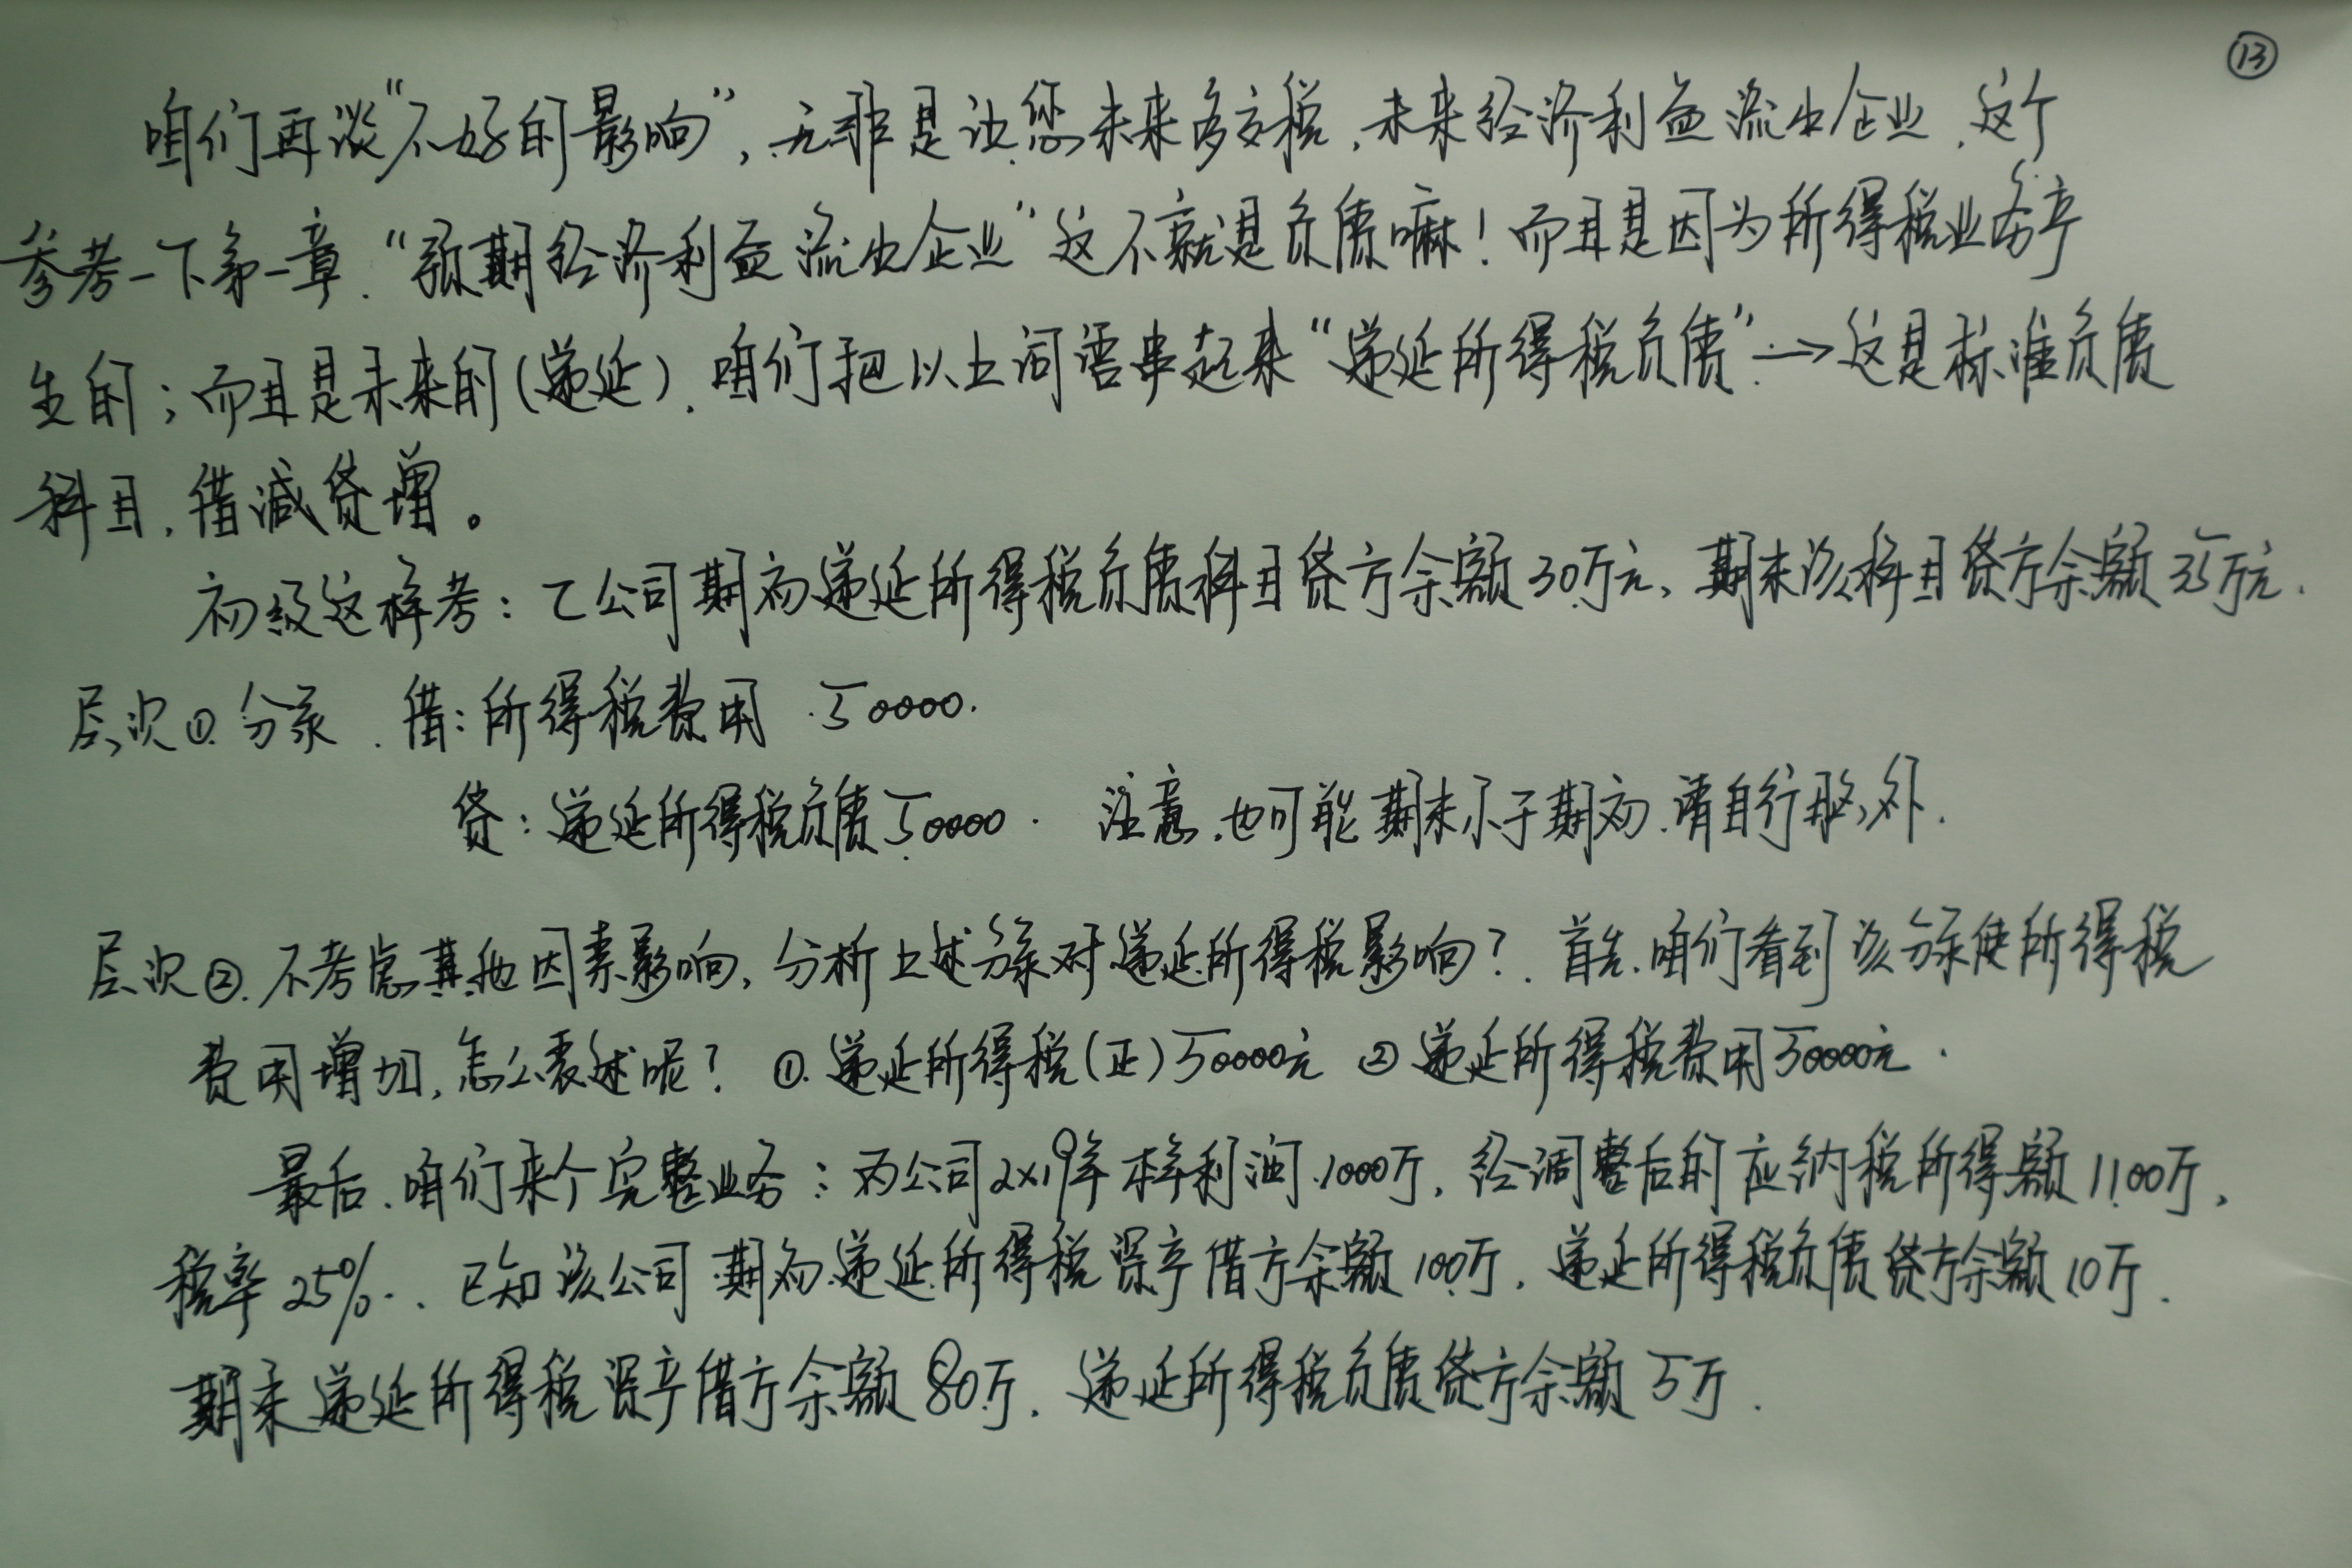 ⑬
咱们再谈“不好的影响”,无非是让您未来多交税,未来经济利益流出企业,这个
参考一下第一章.“预期经济利益流出企业”这不就是负债嘛!而且是因为所得税业务产
生的;而且是未来的(递延).咱们把以上词语串起来“递延所得税负债”.→这是标准负债
科目,借减贷增。
初级这样考:乙公司期初递延所得税负债科目贷方余额30万元,期末该科目贷方余额35万元.
层次①.分录.借:所得税费用 50000.
贷:递延所得税负债50000. 注意,也可能期末小于期初.请自行脑补.
层次②.不考虑其他因素影响,分析上述分录对递延所得税影响?.首先.咱们看到该分录使所得税
费用增加,怎么表述呢? ①.递延所得税(正)50000元 ②递延所得税费用50000元.
最后.咱们来个完整业务:丙公司2×19年本年利润1000万,经调整后的应纳税所得额1100万,
税率25%..已知该公司期初递延所得税资产借方余额100万,递延所得税负债贷方余额10万.
期末递延所得税资产借方余额80万.递延所得税负债贷方余额5万.